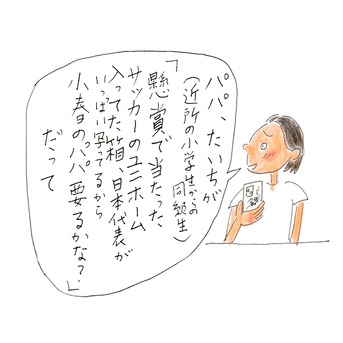 パパ、たいちが
(近所の小学生からの
同級生)
「懸賞で当たった、
サッカーのユニホーム
入ってた箱、日本代表が
いっぱい写ってるから
小春のパパ要るかな?」
だって